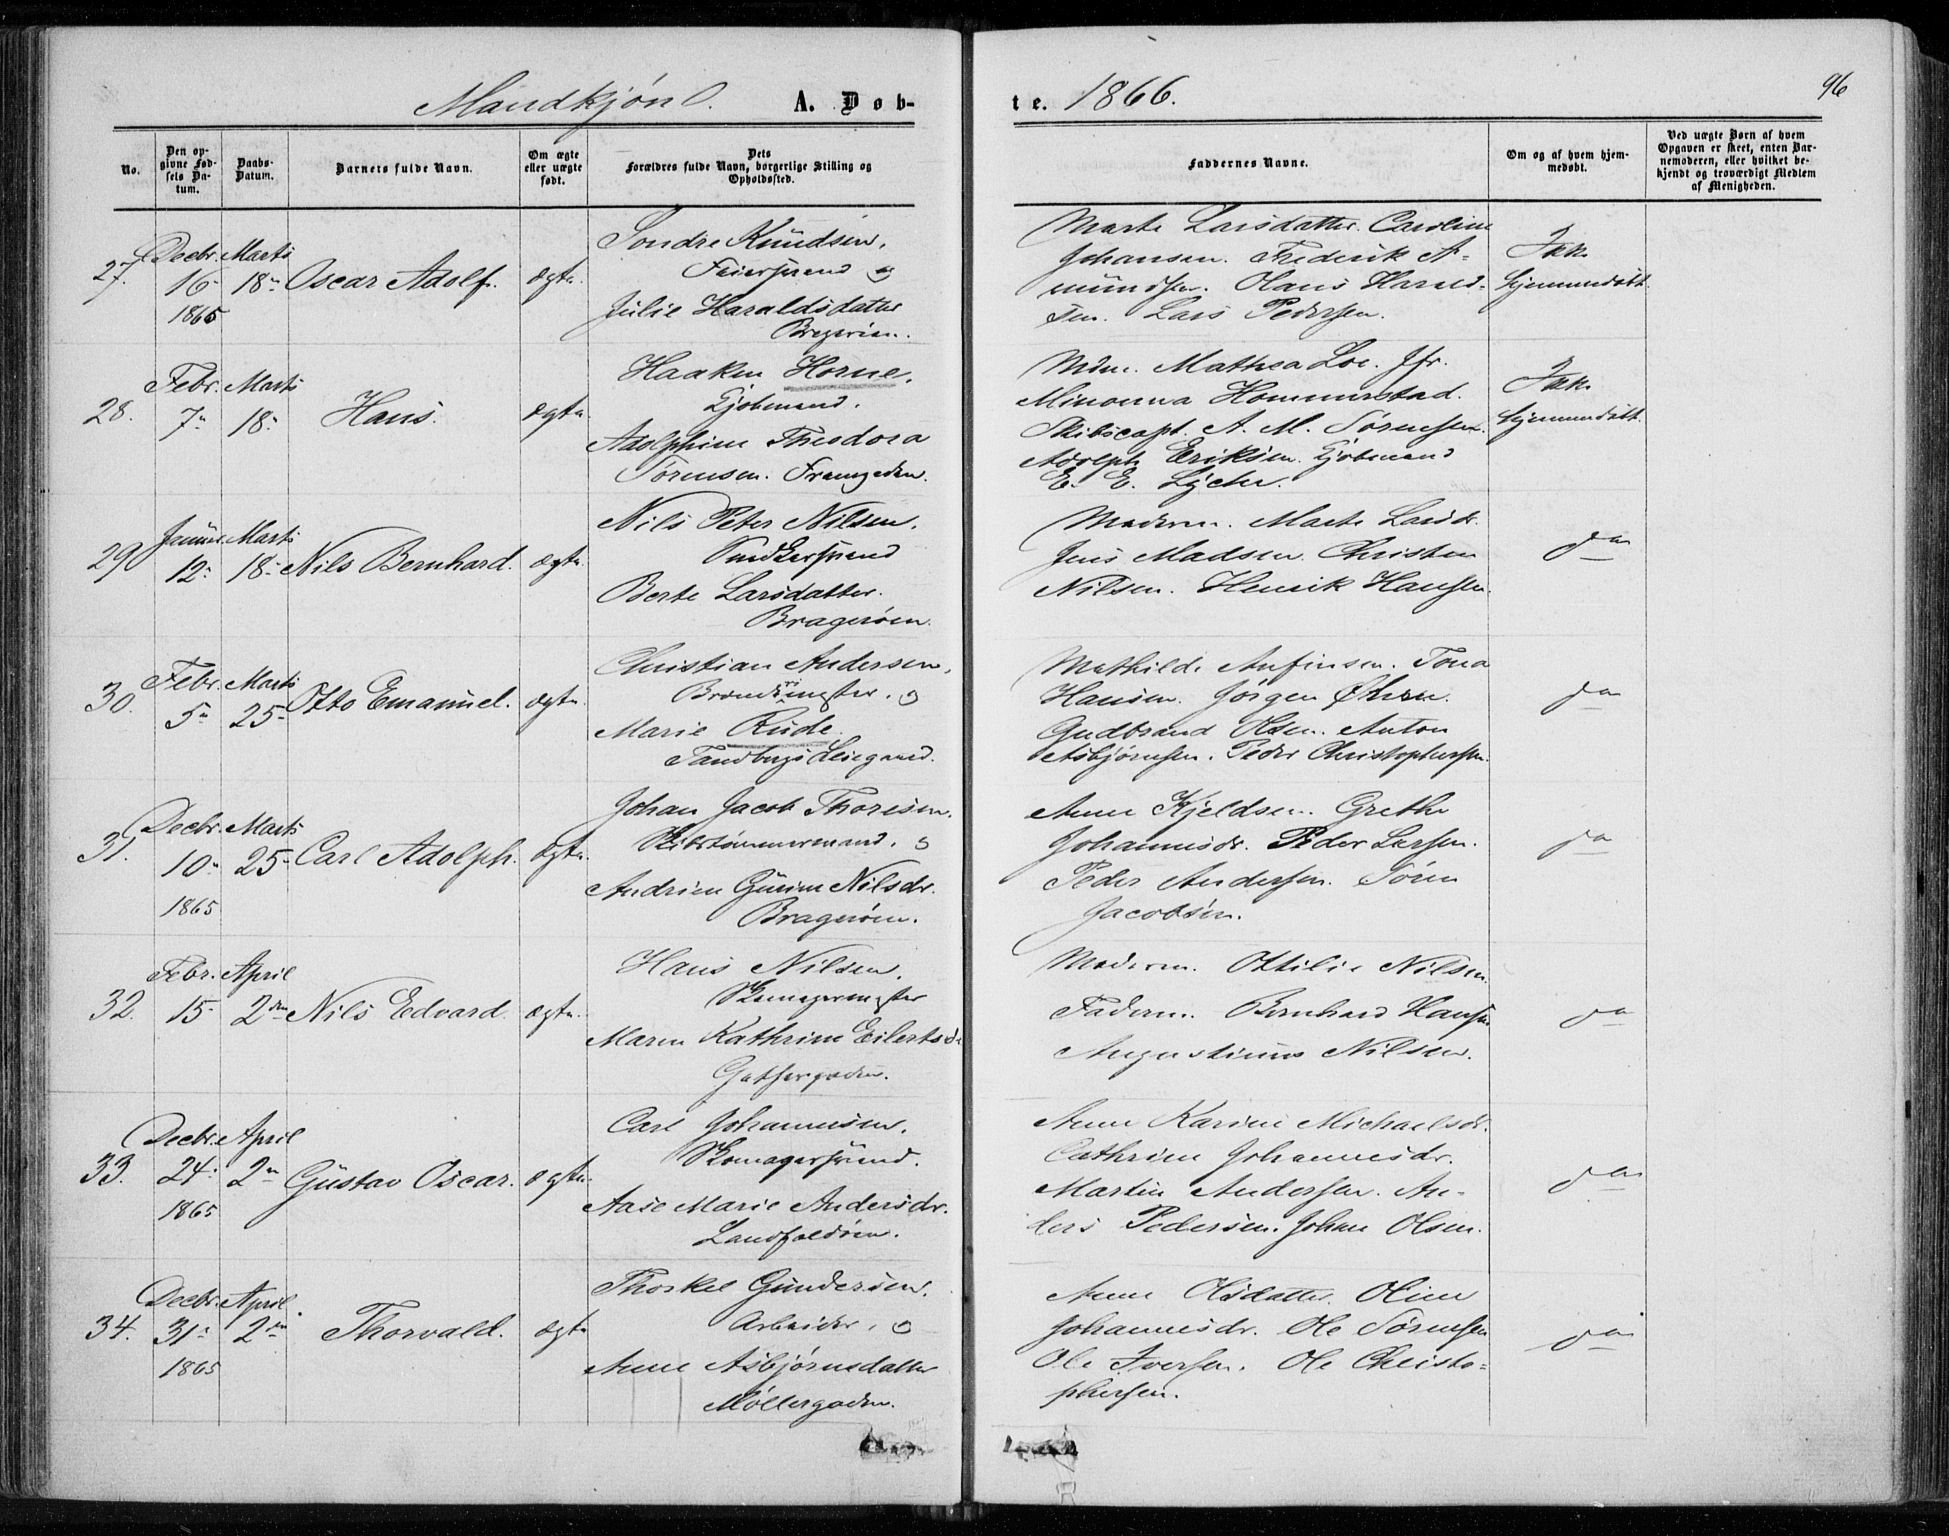 Mandkjøn. A. Døb-
te. 1866.
96
No.
Den op-
givne Fød-
sels Da-
tum.
Daabs-
Datum.
Barnets fulde Navn.
Om ægte
eller uægte
født.
Dets
Forældres fulde Navn, borgerlige Stilling og
Opholdssted.
Faddernes Navne.
Om og af hvem hjem-
medøbt.
Ved uægte Børn af hvem
Opgaven er skeet, enten Bar-
nemoderen, eller hvilket be-
kjendt og troværdigt Medlem
af Menigheden.
27.
Decbr.
16
1865
Marts
18
Oscar Adolf.
ægte.
Sondre Knudsen,
Feiersvend og
Julie Haraldsdatter
Marte Larsdatter. Caroline
Johansen. Frederik A-
mundsen. Hans Harald-
sen. Lars Pedersen.
Ikke
hjemmedøbt.
28.
Febr.
7
Marts
18
Hans.
ægte.
Haaken Horne,
Kjøbmand.
Adolphine Theodora
Sørensen.
Mdm. Mathea Loe. Jfr.
Minonna Hommerstad.
Skibscapt. A. M. Sørensen.
Adolph Eriksen. Kjøbmand
E. E.
Ikke
hjemmedøbt.
29
Januar
12
Marts
18
Nils Bernhard.
ægte.
Nils Peter Nilsen.
Snedkersvend
Berte Larsdatter.
Bragerøen.
Moderen. Marte Larsdr.
Jens Madsen. Christen
Nilsen. Henrik Hansen.
do
30.
Febr.
5
Marts
25
Otto Emanuel.
ægte.
Christian Andersen,
og
Marie Rude.
Mathilde Anfinsen. Tona
Hansen. Jørgen
Gudbrand Olsen. Anton
Asbjørnsen. Peder Christophersen.
do
31.
Decbr.
10
1865
Marts
25
Carl Adolph.
ægte.
Johan Jacob Thoresen.
Skibstømmermand. og
Andrine Gurine Nilsdr.
Bragerøen.
Anne Kjeldsen. Grethe
Johannesdr. Peder Larsen.
Peder Andersen. Søren
Jacobsen.
do
32.
Febr.
15
April
2den
Nils Edvard.
ægte.
Hans Nilsen.
Skomagermester
Maren Kathrine Eilertsdr
Moderen. Ottilie Nilsen.
Faderen. Bernhard Hansen
Augustinus Nilsen.
do
33.
Decbr.
24
1865
April
2
Gustav Oscar.
ægte.
Carl Johannesen.
Skomagersvend.
Aase Marie Andersdr.
Landfaldøen.
Anne Karine Michaelsdr.
Cathrine Johannesdr.
Martin Andersen. An-
ders Pedersen. Johan Olsen.
do
34.
Decbr.
31
1865
April
2den
Thorvald.
ægte
Thorkel Gundersen.
Arbeider, og
Anne Asbjørnsdatter
Møllergaden.
Anne Olsdatter. Oline
Johannesdr. Ole Sørensen
Ole Iversen. Ole Christo-
phersen.
do